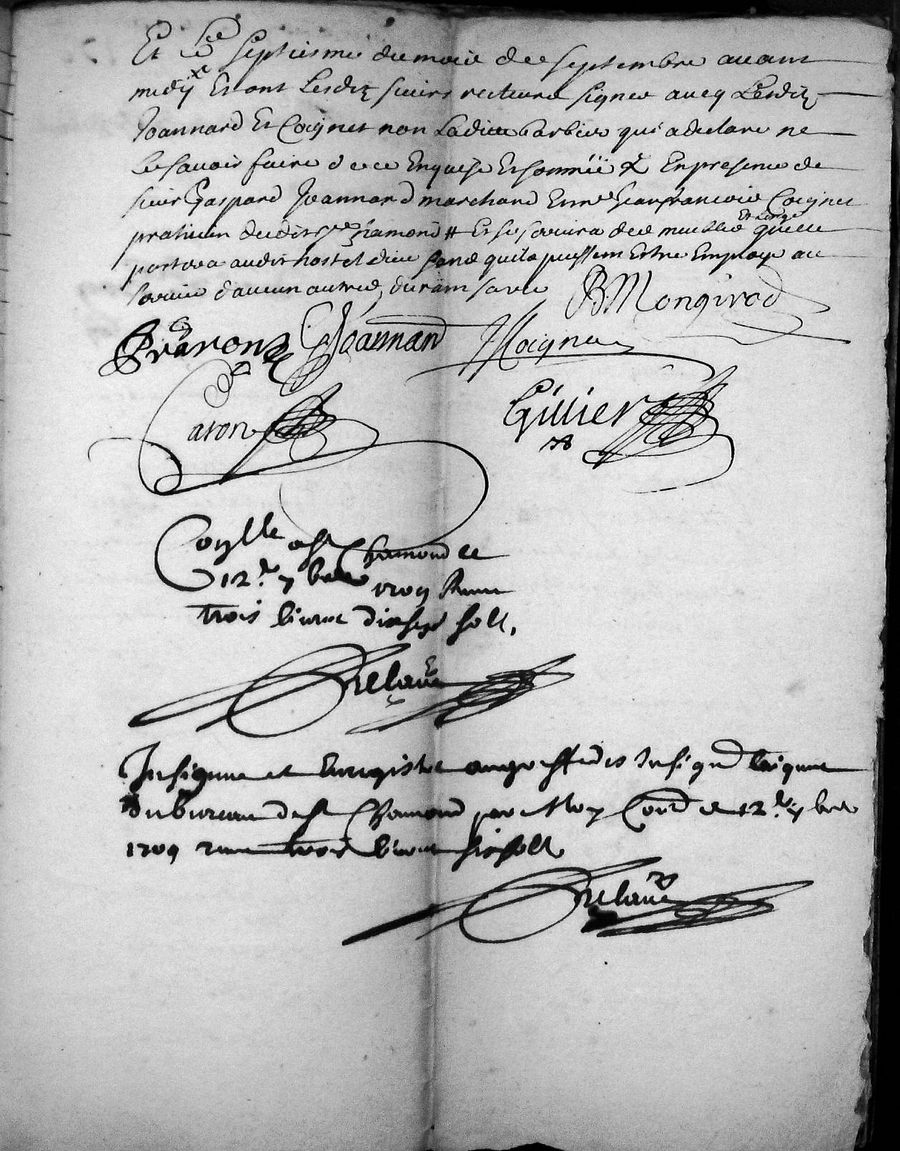 Et le septiesme du mois de septembre avant
midy Et ont Lesditz sieurs recteurs signé avecq Lesditz
Joannard Et Coignet non Ladite barbier qui a declaré ne
le savoir faire de ce Enquise Et sommée En presence de
sieur Gaspard Joannard marchand Et Me Jean francois Coignet
praticien dudit St chamond # Et se servira des meubles Et Linge quelle
portera audit hostel dieu sans quils puissent Estre Employé au
service d'aucun autre, durant sa vie BMongirod
Joannard Coignet
Caron Gillier
Conllé a St Chamond le
12e 7bre 1709 Receu
trois livres dix sept solz,
Insigné et Enregistré au greffe des Insignõns laiques
du bureau de St Chamond par Moy Comis le 12e 7bre
1709 receu trois livres six solz